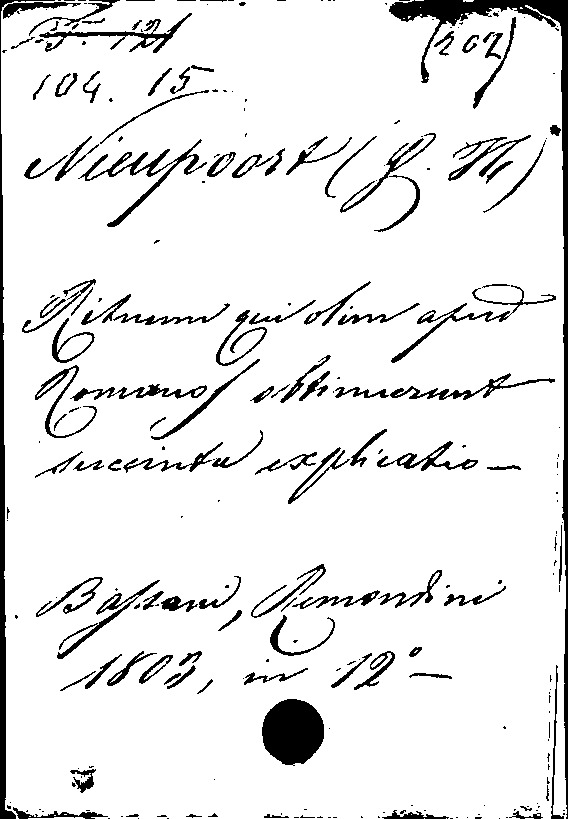 F. 121
(202)
104. 15
Nieupoort (G. H)
Rituum qui olim apud
Romanos obtinuerunt
succinta explicatio —
Bassani, Remondini
1803, in 12° —